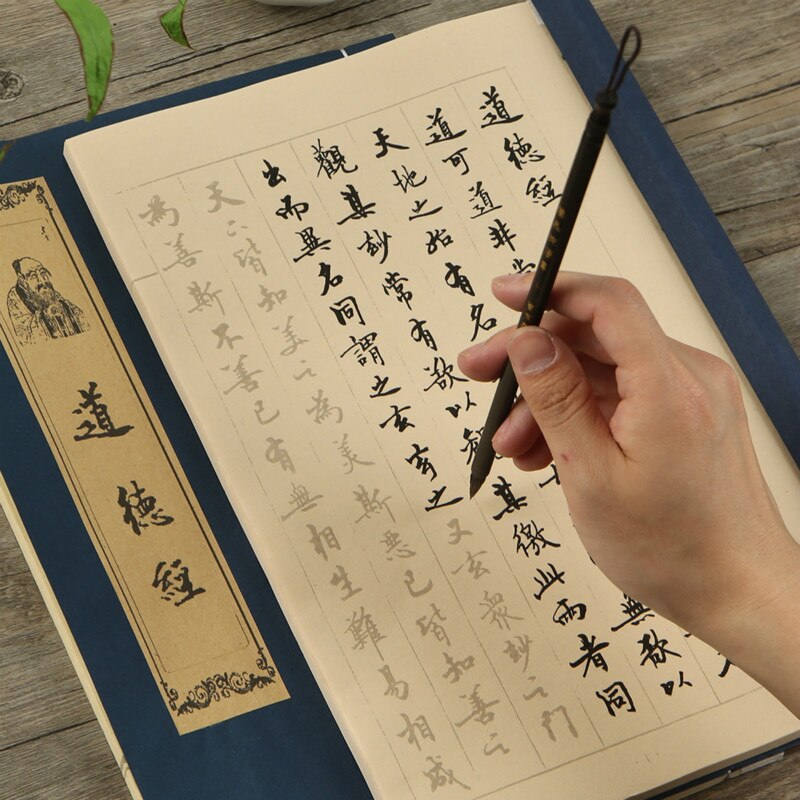 道德經
道可道非常
天地之始有名無欲以
觀其妙常有欲以觀其徼此兩者同
出而異名同謂之玄玄之又玄眾妙之門
天下皆知美之為美斯惡已皆知善之
為善斯不善已有無相生難易相成
道德經